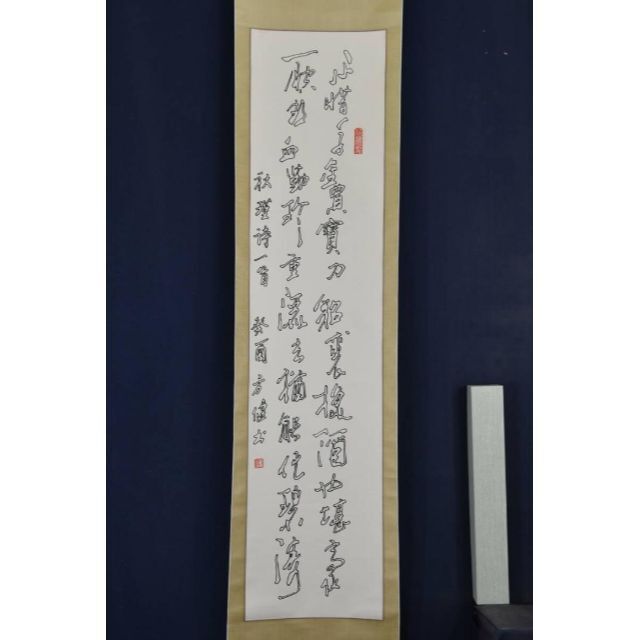 不惜千金買寶刀貂裘換酒也堪豪
一腔热血勤珍重灑去猶能化碧濤
秋瑾诗一首 癸酉 方书